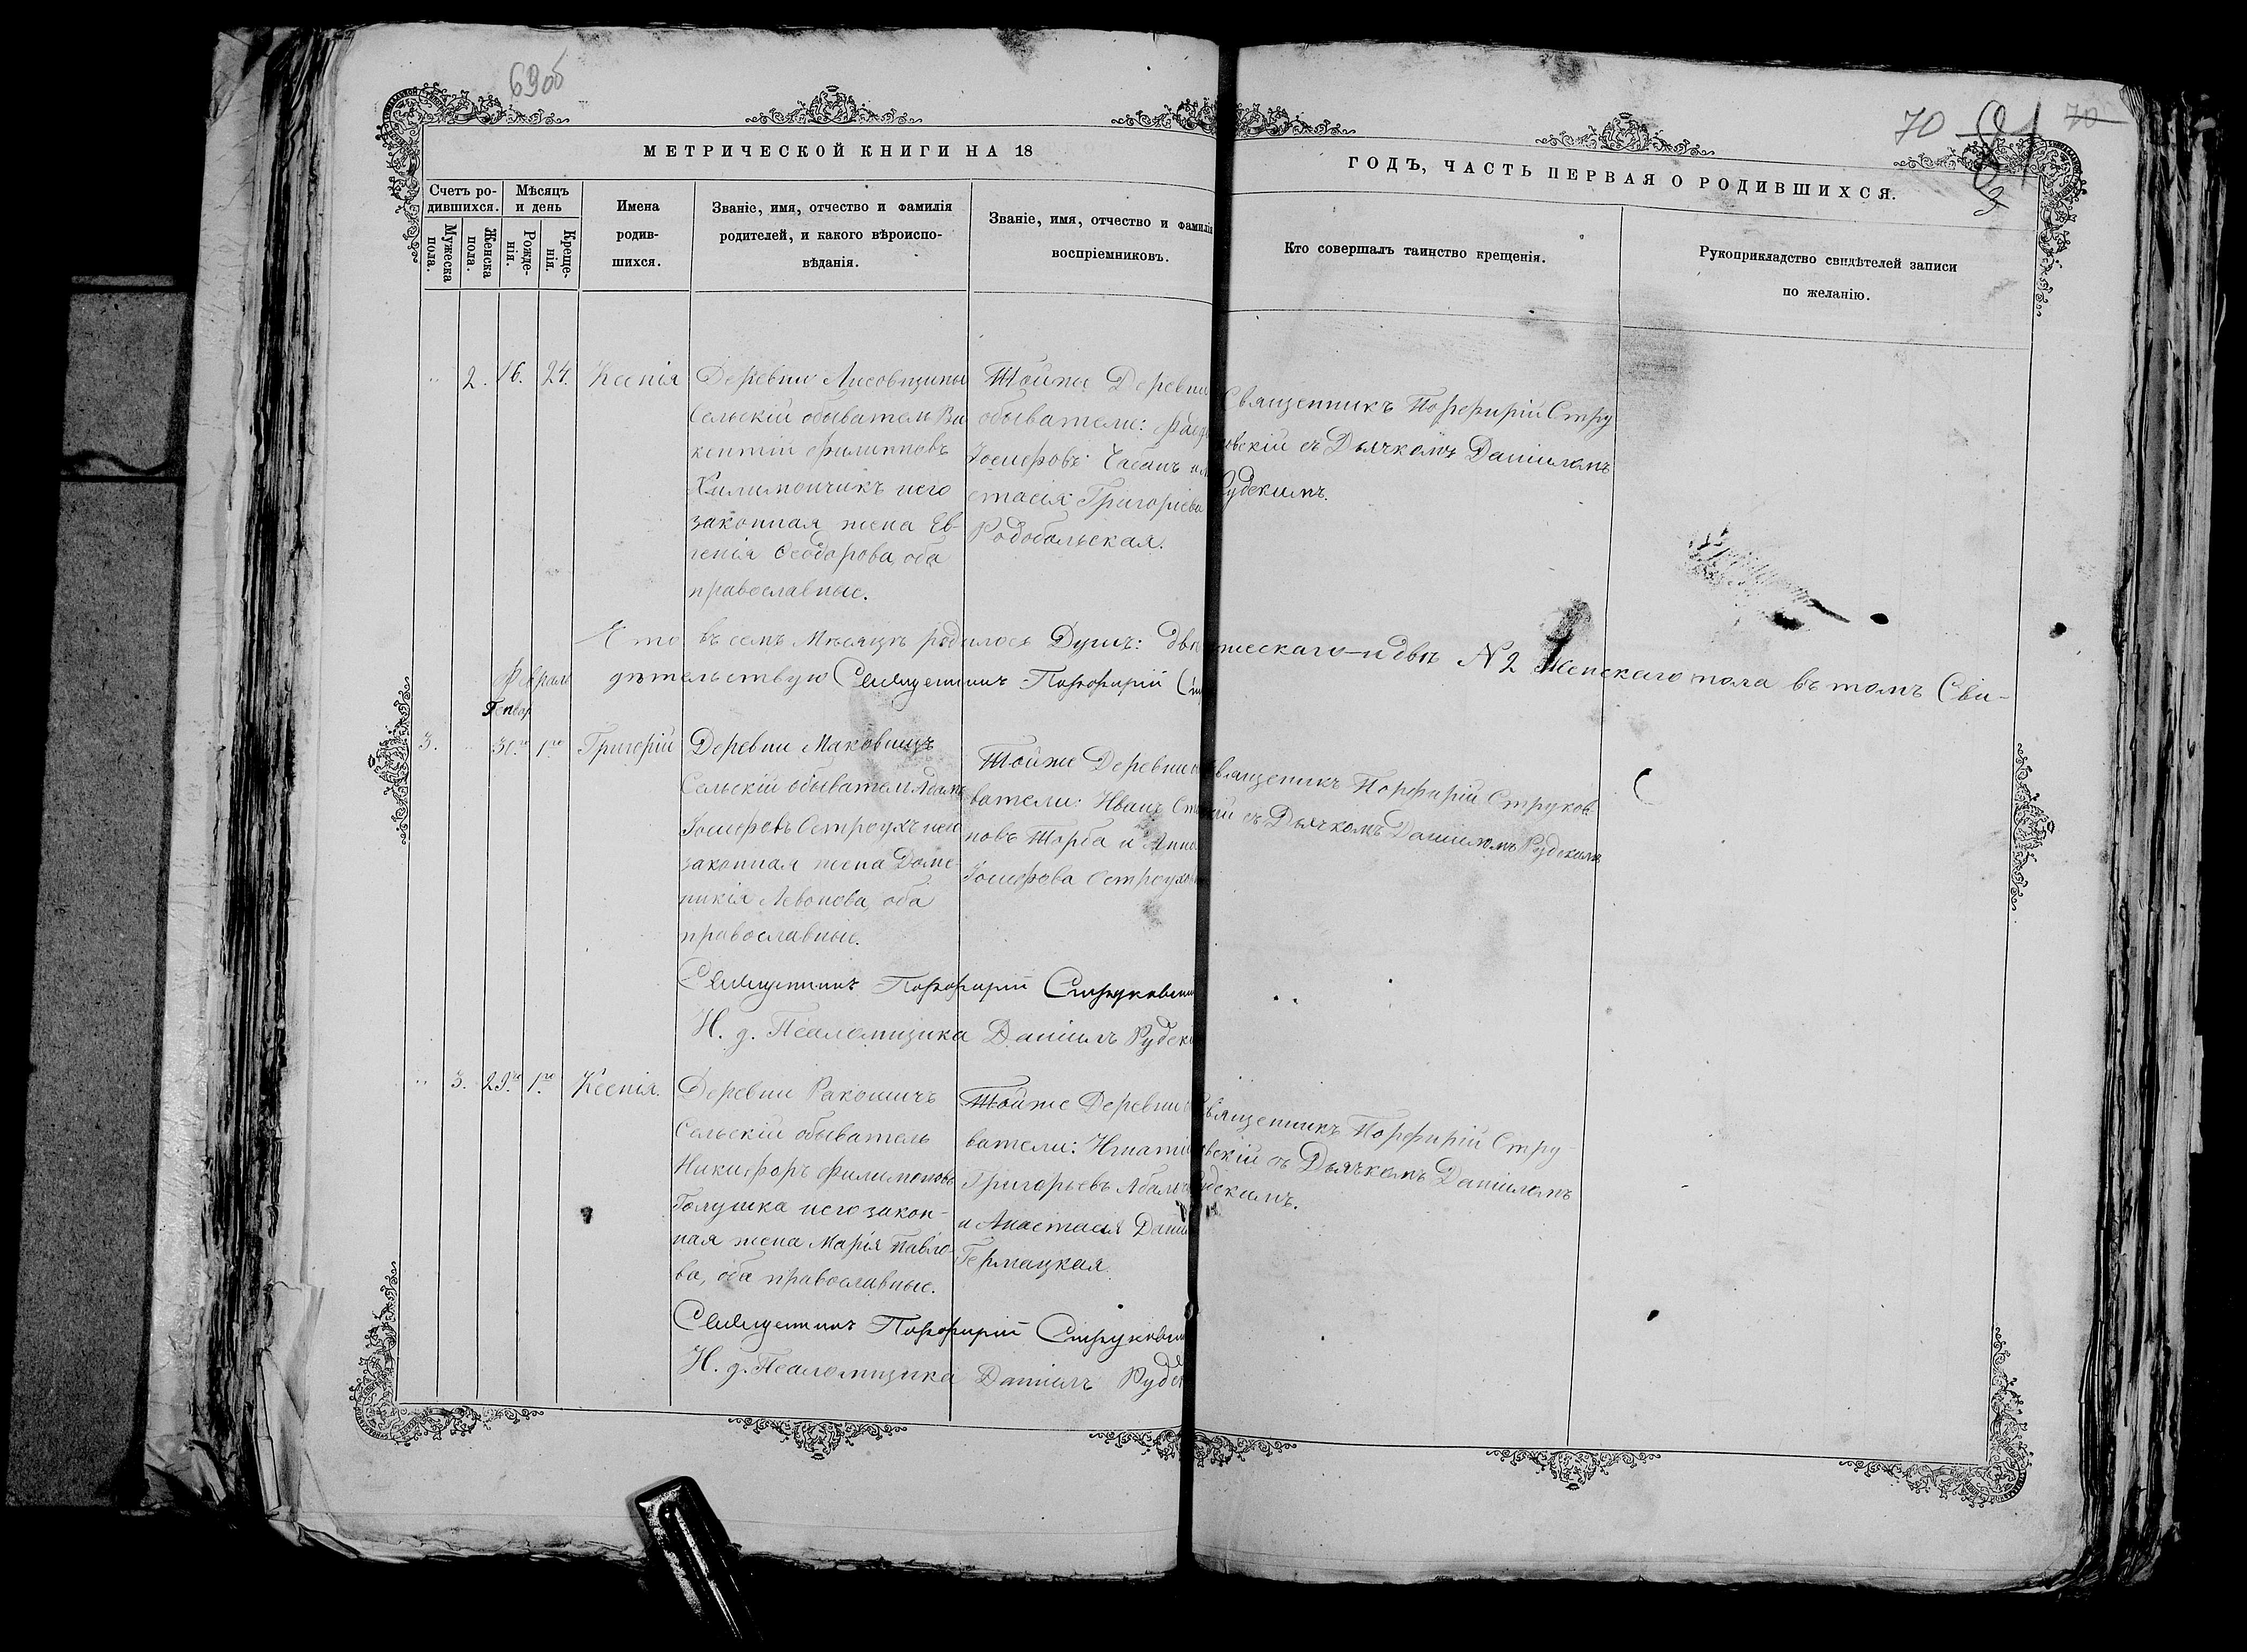 69об
70
70
МЕТРИЧЕСКОЙ КНИГИ НА 18
ГОДЪ, ЧАСТЬ ПЕРВАЯ О РОДИВШИХСЯ.
Счетъ ро-
дившихся.
Мужеска
пола.
Женска
пола.
Мѣсяцъ
и день
Рожде-
нія.
Креще-
нія.
Имена
родив-
шихся.
Званіе, имя, отчество и фамилія
родителей, и какого вѣроиспо-
вѣданія.
Званіе, имя, отчество и фамилія
воспріемниковъ.
Кто совершалъ таинство крещенія.
Рукоприкладство свидѣтелей записи
по желанію.
2. 16. 24. Ксенія
Деревни Лисовщины
Сельскій обыватель Ви
кентій Филипповъ
Филимончикъ и его
законная жена Ев-
генія Ѳеодорова, оба
православные.
Тойже Деревни
обыватели:
Іосифовъ Чабанъ
стасія Григоріева
Родобольская.
Священникъ Порфирій Стру
овскій съ Дьячкомъ Даніиломъ
Рудскимъ.
въ семъ Мѣсяцѣ родилось Душъ: двѣ
жескаго и двѣ N 2 женскаго пола въ томъ Сви-
дѣтельствую Священникъ Порфирій
Февраль
Генвар
3. 31.го 1.го Григорій
Деревни Маковищъ
Сельскій обыватель Адамъ
Іосифовъ Остроухъ и его
законная жена Доме-
никія Левонова, оба
православные.
Тойже Деревни
ватели: Иванъ
новъ Торба и Анна
Іосифова Остроухова
вященикъ Порфирій Струков
кій съ Дьячкомъ Даніиломъ Рудскимъ
Священникъ Порфирій Струковскій
И. д. Псаломщика Даніилъ Рудск
3. 29.го 1.го Ксенія.
Деревни Ракошичъ
Сельскій обыватель
Никифоръ Филимоновъ
Голушка и его закон-
ная жена Марія Павло-
ва, оба православные.
Тойже Деревни
ватели: Игнатій
Григорьевъ Абам
и Анастасія Дани
Гермацкая.
вященникъ Порфирій Стру-
овскій съ Дьячкомъ Даніиломъ
удскимъ.
Священникъ Порфирій Струковскій
И. д. Псаломщика Даніилъ Рудск